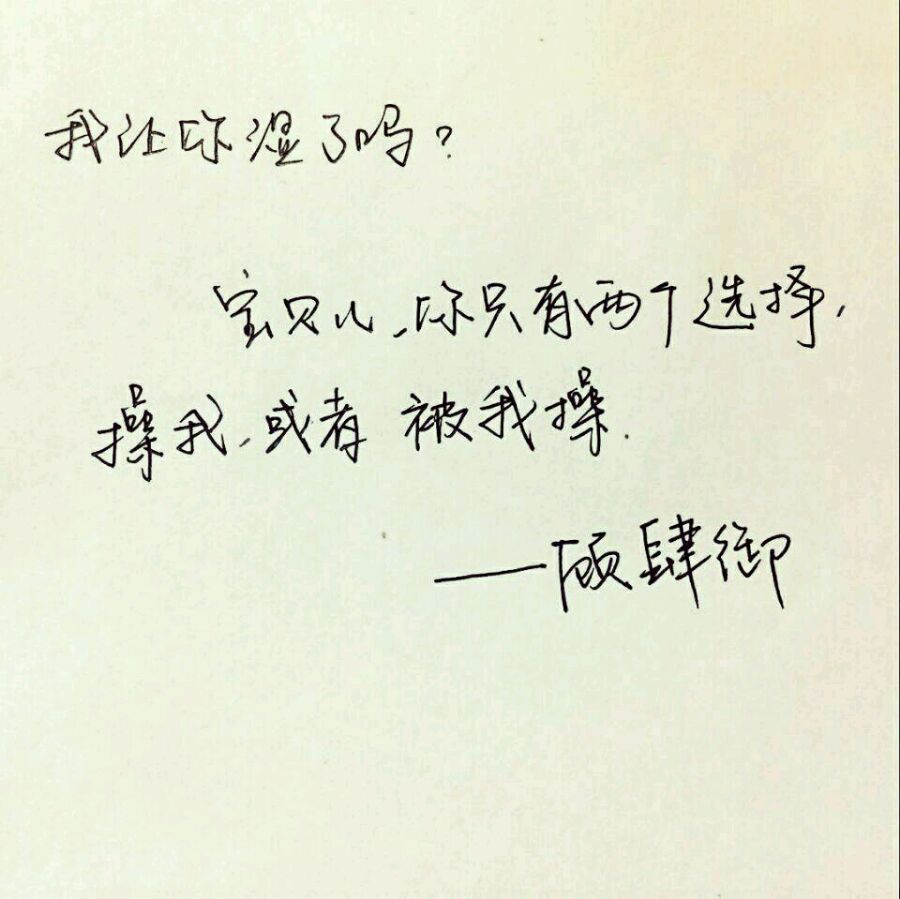 我让你湿了吗?
宝贝儿,你只有两个选择,
操我,或者被我操.
——顾肆御